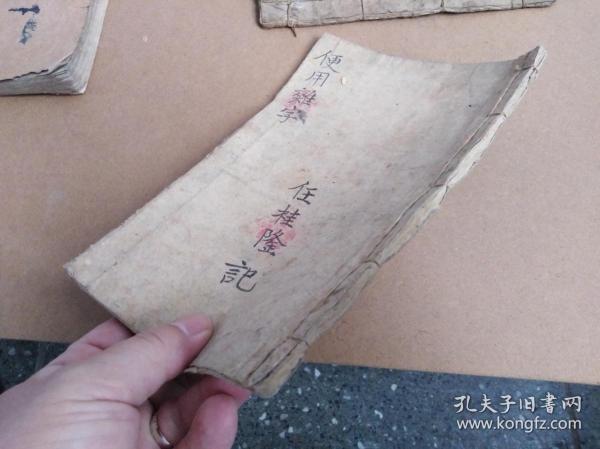 便用雜字
任桂隆記
孔夫子旧書网
www.kongfz.com